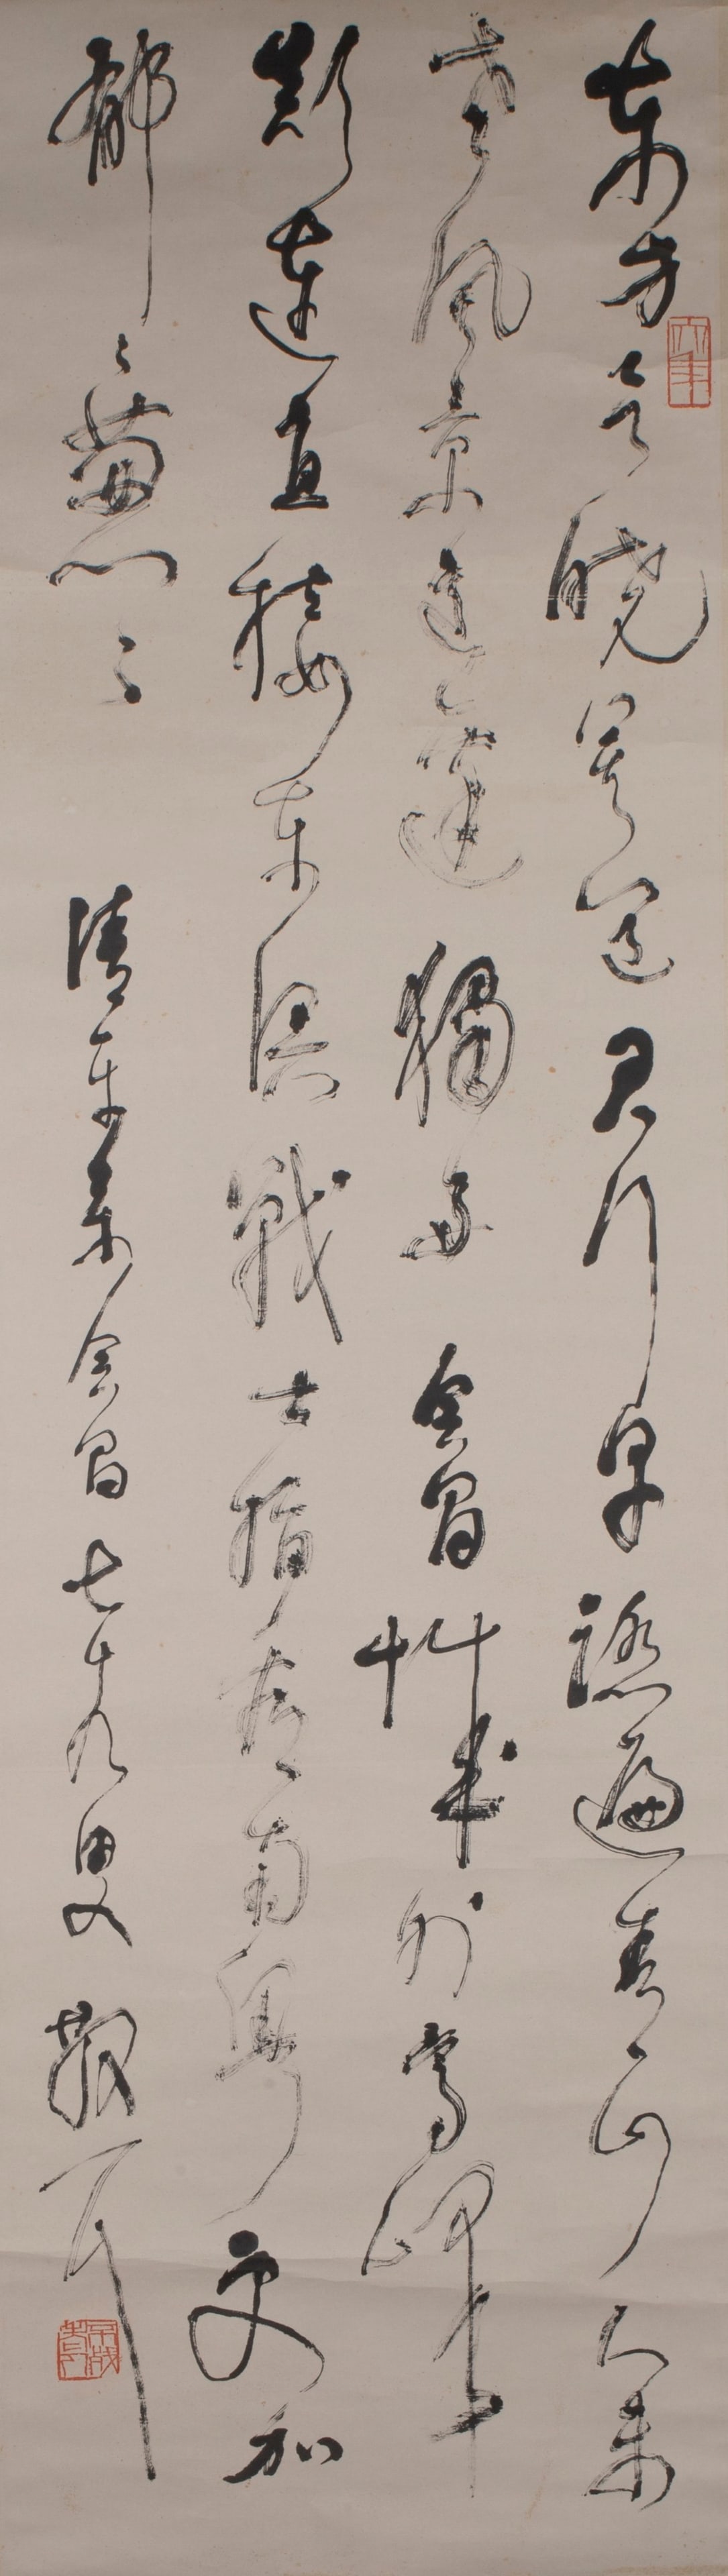 東方欲曉莫道君行早踏遍青山人未
老風景這邊獨好會昌城外高峰
顛連直接東溟戰士指看南粵更加
郁〻蔥〻 清平樂會昌 七十九叟 散耳